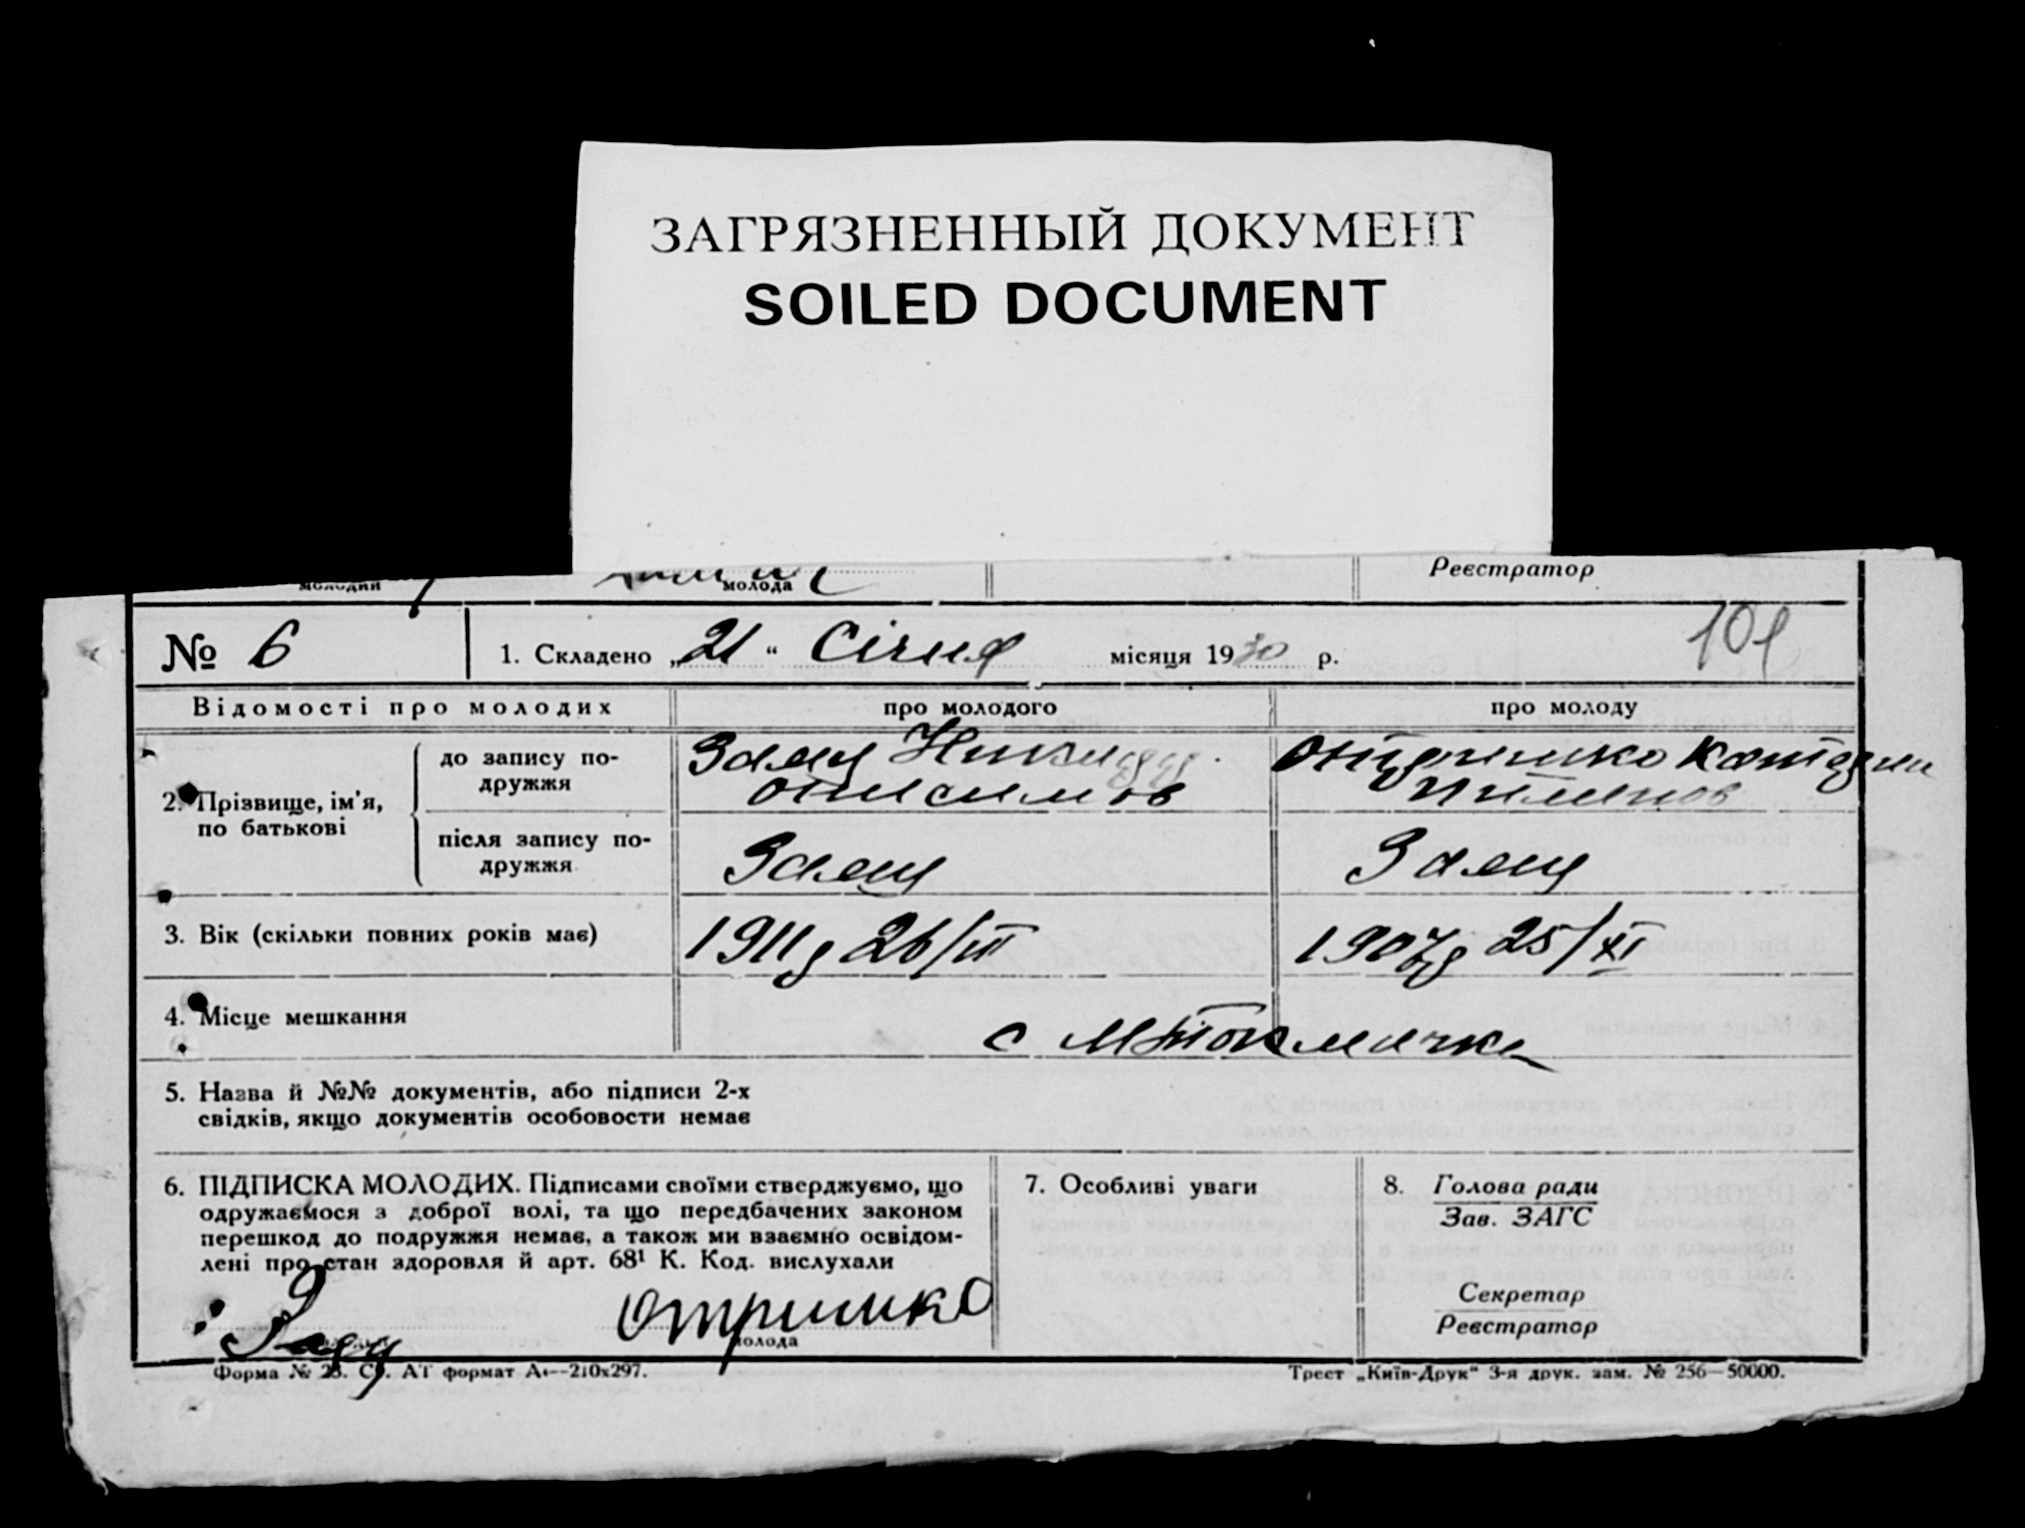 ЗАГРЯЗНЕННЫЙ ДОКУМЕНТ
SOILED DOCUMENT
молодий
молода
Реєстратор
№ 6
1. Складено „21“ Січня місяця 1930 р.
101
Відомості про молодих
про молодого
про молоду
2. Прізвище, ім'я, по батькові
до запису по-
дружжя
Заяц
Онисимов
Катерин
Пименов
після запису по-
дружжя
Заяц
Заяц
3. Вік (скільки повних років має)
1911р 26/III
1907р 25/XI
4. Місце мешкання
с МТокмачка
5. Назва й №№ документів, або підписи 2-х
свідків, якщо документів особовости немає
6. ПІДПИСКА МОЛОДИХ. Підписами своїми стверджуємо, що
одружаємося з доброї волі, та що передбачених законом
перешкод до подружжя немає, а також ми взаємно освідом-
лені про стан здоровля й арт. 68¹ К. Код. вислухали
молода
7. Особливі уваги
8. Голова ради
Зав. ЗАГС
Секретар
Реєстратор
Форма № 23. Ст. АТ формат А4—210х297.
Трест „Київ-Друк“ 3-я друк. зам. № 256—50000.